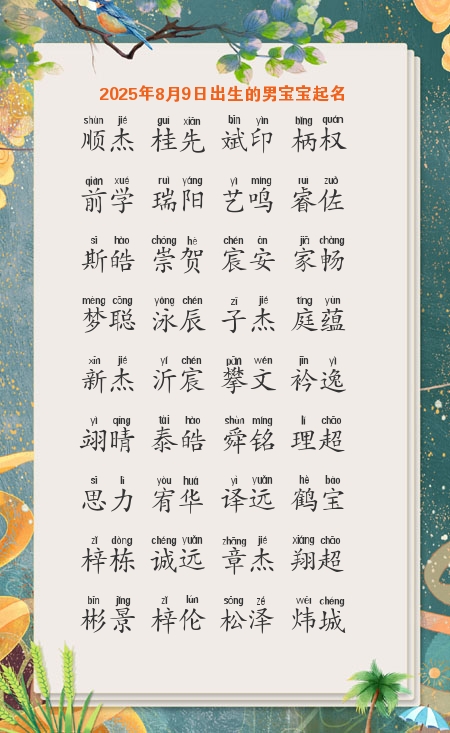 2025年8月9日出生的男宝宝起名
shùn jié guì xiān bīn yìn bǐng quán
顺杰 桂先 斌印 柄权
qián xué ruì yáng yì míng ruì zuǒ
前学 瑞阳 艺鸣 睿佐
sī hào chóng hè chén ān jiā chàng
斯皓 崇贺 宸安 家畅
mèng cōng yǒng chén zǐ jié tíng yùn
梦聪 泳辰 子杰 庭蕴
xīn jié yí chén pān wén jīn yì
新杰 沂宸 攀文 衿逸
yì qíng tài hào shùn míng lǐ chāo
翊晴 泰皓 舜铭 理超
sī lì yòu huá yì yuǎn hè bǎo
思力 宥华 译远 鹤宝
zǐ dòng chéng yuǎn zhāng jié xiáng chāo
梓栋 诚远 章杰 翔超
bīn jǐng zǐ lún sōng zé wěi chéng
彬景 梓伦 松泽 炜城